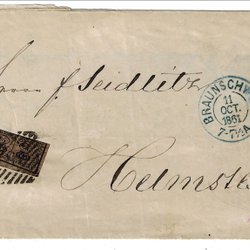 f. Seidlitz
BRAUNSCHW
11
OCT.
1861
7-7½
Helmste